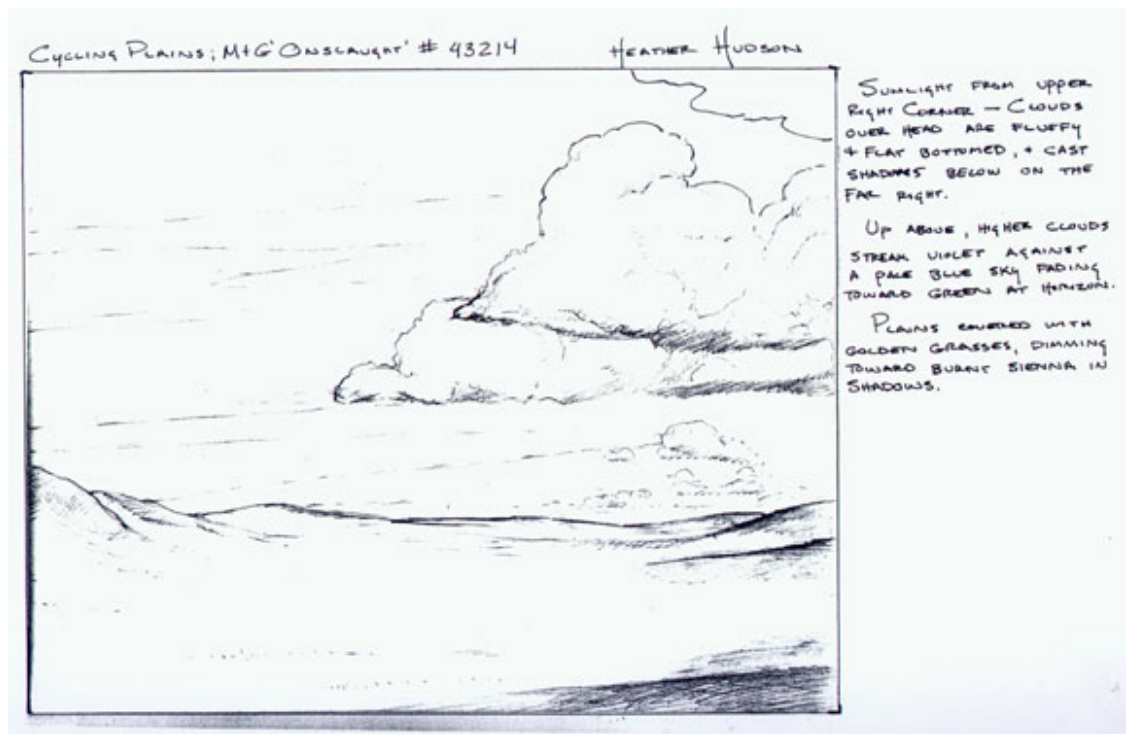 Cycling Plains; MtG 'Onslaught' # 43214
Heather Hudson
Sunlight from upper
right corner — clouds
over head are fluffy
+ flat bottomed, + cast
shadows below on the
far right.
Up above, higher clouds
streak violet against
a pale blue sky fading
toward green at horizon.
Plains covered with
golden grasses, dimming
toward burnt sienna in
shadows.